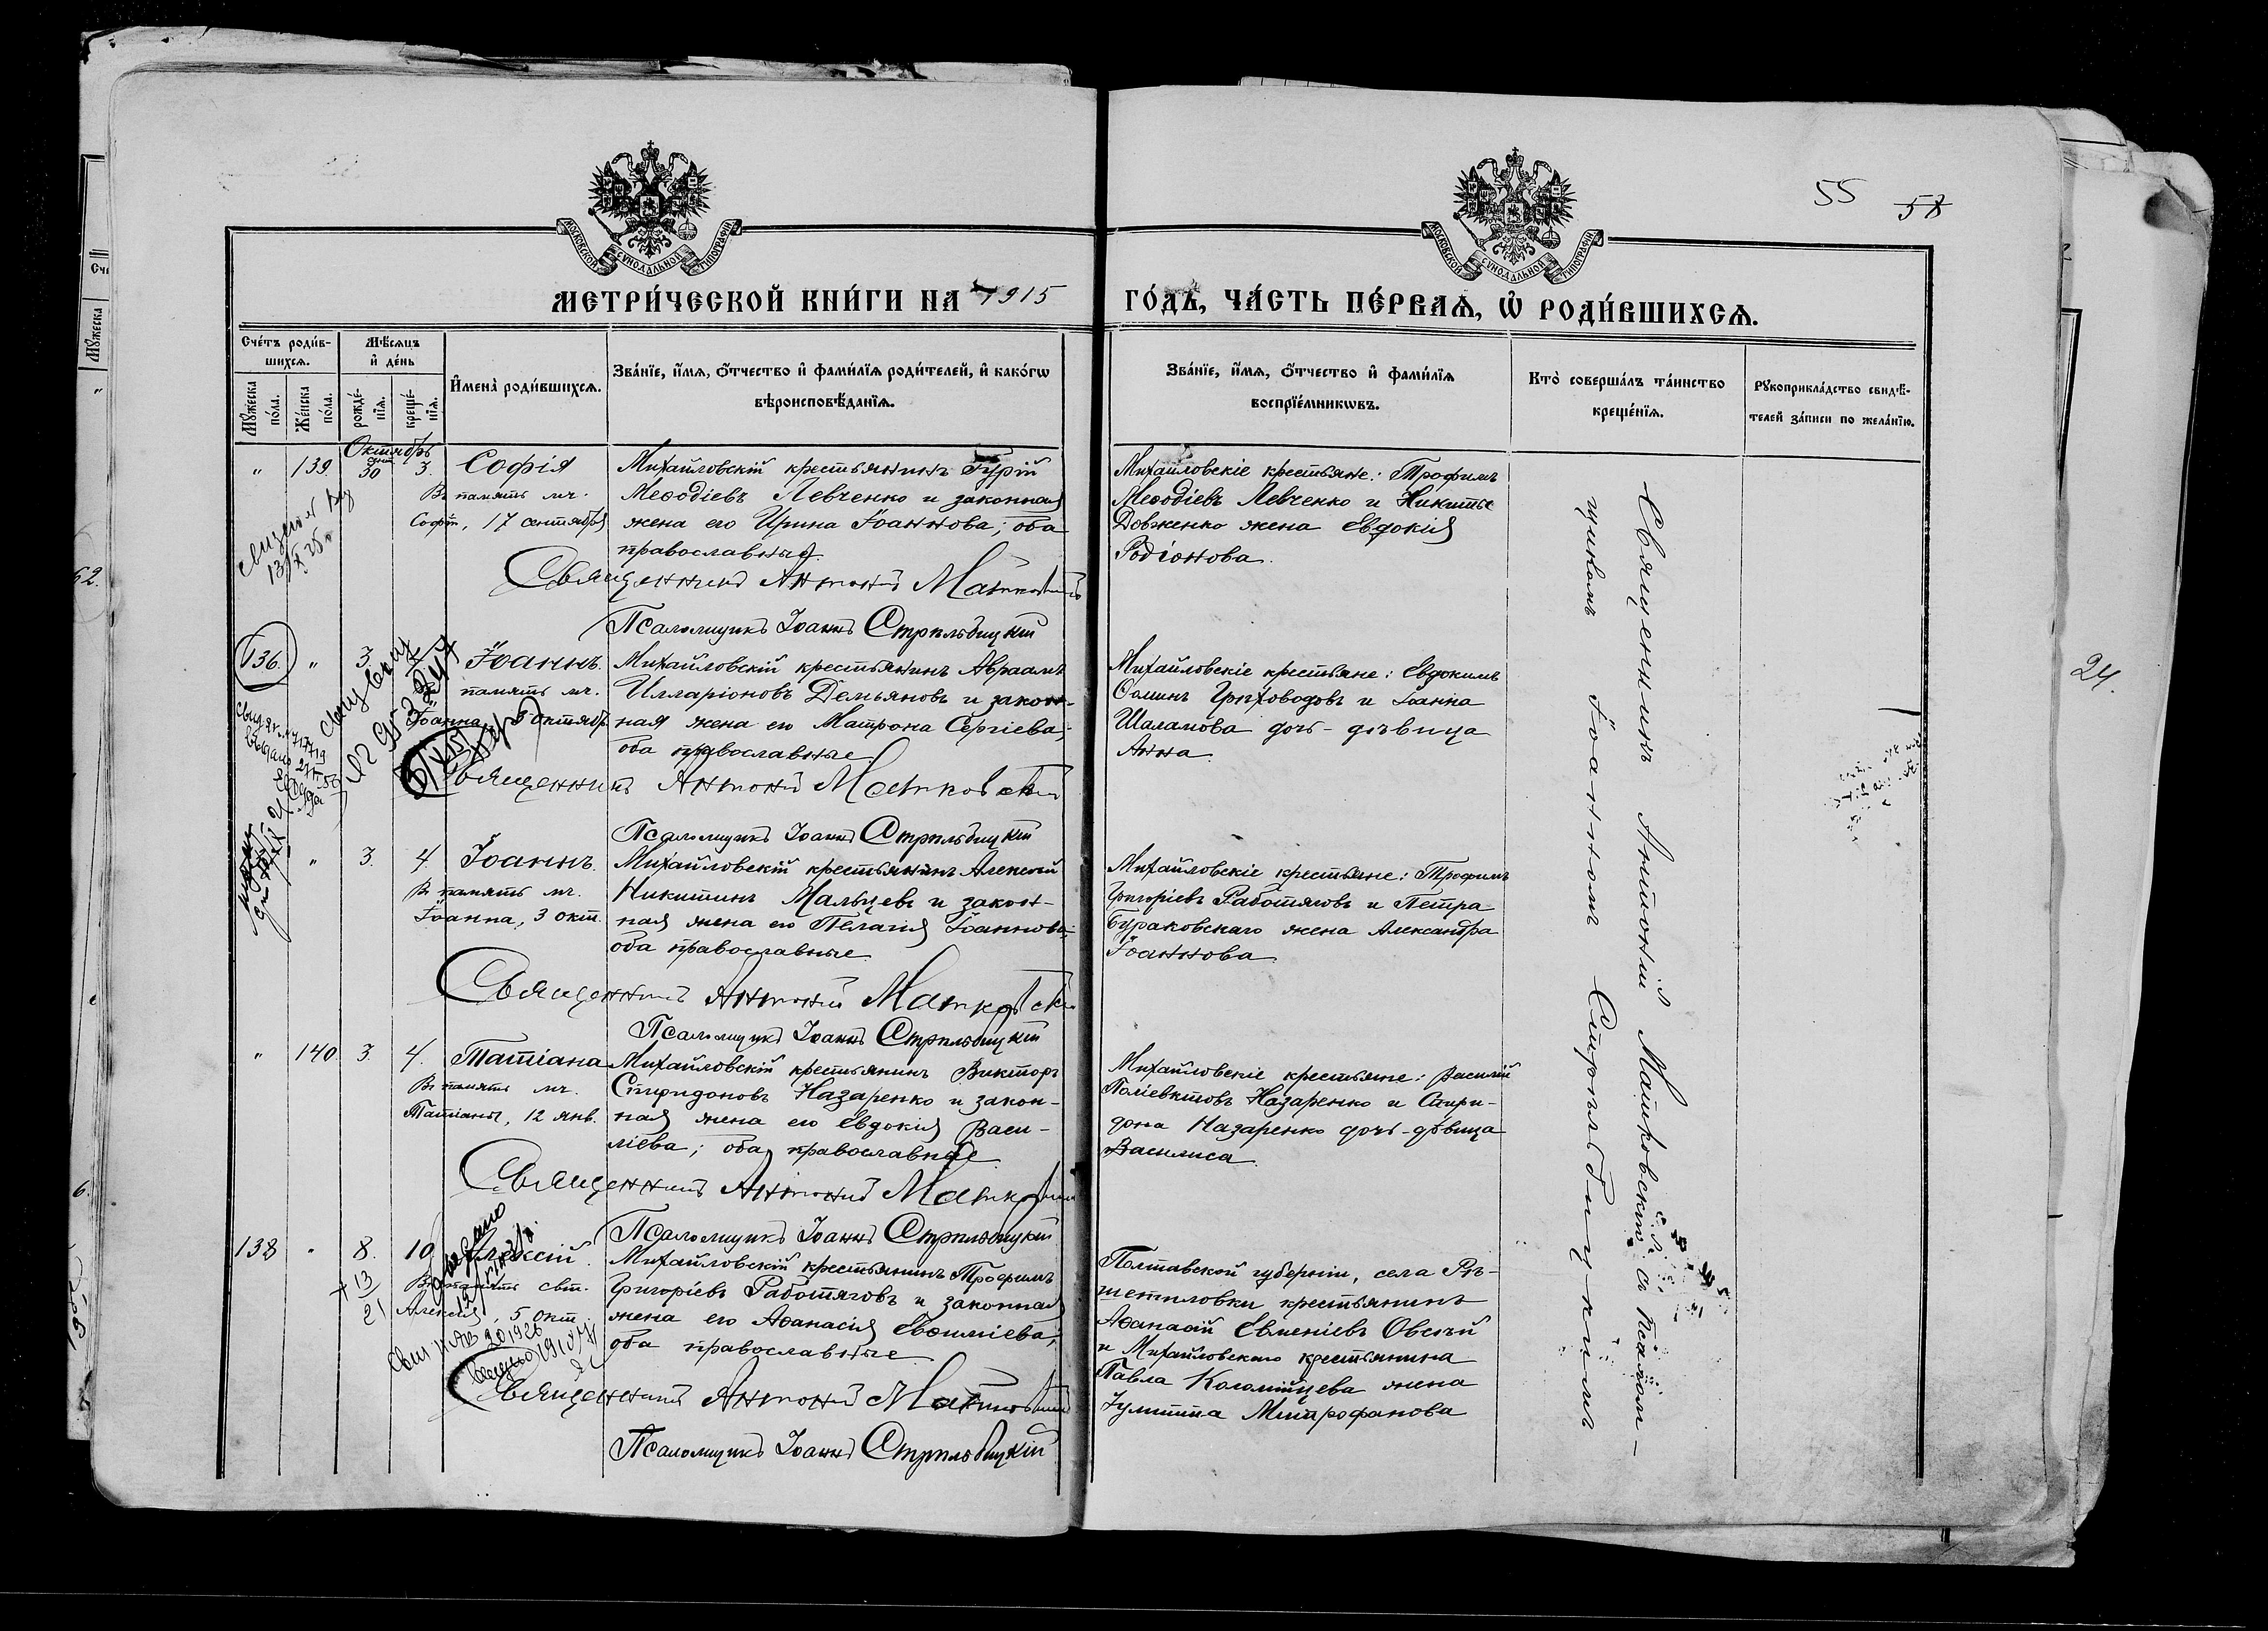 55 58
МОСКОВСКОЙ СУНОДАЛЬНОЙ ТИПОГРАФІИ
МОСКОВСКОЙ СУНОДАЛЬНОЙ ТИПОГРАФІИ
МЕТРИ́ЧЕСКОЙ КНИ́ГИ НА 1915
ГО́ДЪ, ЧА́СТЬ ПЕ́РВАѦ, Ѡ҆ РОДИ́ВШИХСѦ.
Сче́тъ роди́в-
шихсѧ.
Мꙋ́жеска
по́ла.
Же́нска
по́ла.
Мѣ́сѧцъ
и҆ де́нь
рожде́-
нїѧ.
креще́-
нїѧ.
И҆мена̀ роди́вшихсѧ.
Зва́нїе, и҆́мѧ, ѻ҆́тчество и҆ фами́лїѧ роди́телей, и҆ како́гѡ
вѣроисповѣ́данїѧ.
Зва́нїе, и҆́мѧ, ѻ҆́тчество и҆ фами́лїѧ
воспрїе́мникѡвъ.
Кто̀ соверша́лъ та́инство
креще́нїѧ.
Рꙋкоприкла́дство свидѣ́-
телей за́писи по жела́нїю.
Октябрь
" 139 30 3. Софія
Въ память мч.
Софіи, 17 сентября
Михайловскій крестьянинъ Гурій
Меѳодіевъ Левченко и законная
жена его Ирина Іоаннова; оба
православные.
Священникъ Антоній Матковскій
Псаломщикъ Іоаннъ Стрѣльбицкій
Михайловскіе крестьяне: Трофимъ
Меѳодіевъ Левченко и Никиты
Довженко жена Евдокія
Родіонова.
136. " 3. Іоаннъ.
память мч.
Іоанна, 3 октябр.
Михайловскій крестьянинъ Авраамъ
Илларіоновъ Демьяновъ и закон-
ная жена его Матрона Сергіева;
оба православные
Священникъ Антоній Матковскій
Псаломщикъ Іоаннъ Стрѣльбицкій
Михайловскіе крестьяне: Евдокимъ
Ѳоминъ Грыховодовъ и Іоанна
Шаламова дочь-дѣвица
Анна.
" 3. 4 Іоаннъ.
Въ память мч.
Іоанна, 3 окт.
Михайловскій крестьянинъ Алексій
Никитинъ Мальцевъ и закон-
ная жена его Пелагія Іоаннова;
оба православные.
Священникъ Антоній Матковскій
Псаломщикъ Іоаннъ Стрѣльбицкій
Михайловскіе крестьяне: Трофимъ
Григоріевъ Работяговъ и Петра
Бураковскаго жена Александра
Іоаннова
" 140. 3. 4. Татіана
Въ память мч.
Татіаны, 12 янв.
Михайловскій крестьянинъ Викторъ
Спиридоновъ Назаренко и закон-
ная жена его Евдокія Васи-
ліева; оба православные
Священникъ Антоній Матковскій
Псаломщикъ Іоаннъ Стрѣльбицкій
Михайловскіе крестьяне: Василій
Поліевктовъ Назаренко и Спири-
дона Назаренко дочь-дѣвица
Василиса.
138 " 8. 10. Алексій.
Въ память свт.
Алексія, 5 окт
Михайловскій крестьянинъ Трофимъ
Григоріевъ Работяговъ и законная
жена его Аѳанасія Евѳиміева;
оба православные
Священникъ Антоній Матковскій
Псаломщикъ Іоаннъ Стрѣльбицкій
Полтавской губерніи, села Рѣ-
шетиловки крестьянинъ
Аѳанасій Евменіевъ Овсѣй
и Михайловскаго крестьянина
Павла Коломійцева жена
Іулитта Митрофанова
Священникъ Антоній Матковскій съ Псалом-
щикомъ Іоанномъ Стрѣльбицкимъ
24.